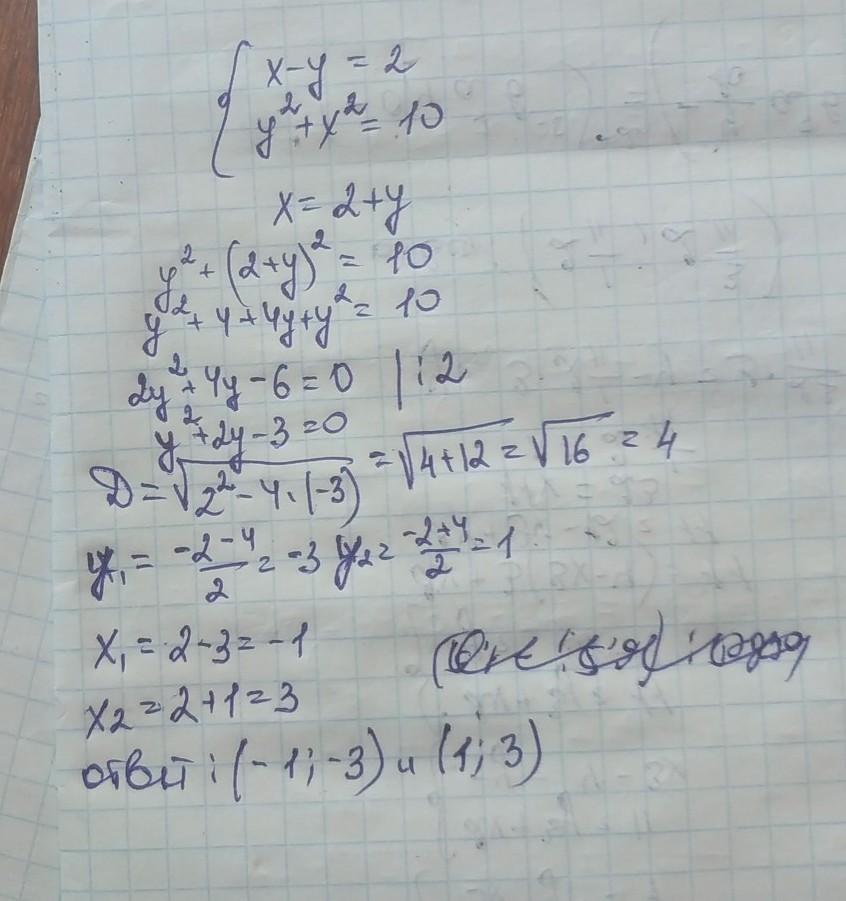 x-y = 2
y²+x² = 10
x = 2+y
y²+(2+y)² = 10
y²+4+4y+y² = 10
2y²+4y-6=0 |:2
y²+2y-3=0
D=√(2²-4·(-3)) = √(4+12) = √16 = 4
y₁ = (-2-4)/2 = -3 y₂ = (-2+4)/2 = 1
x₁ = 2-3 = -1
x₂ = 2+1 = 3
ответ: (-1; -3) и (1; 3)